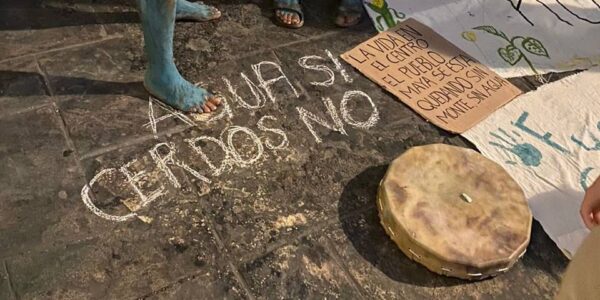 AGUA SI
CERDOS NO
LA VIDA EN
EL CENTRO
EL PUEBLO
MAYA SE ESTA
QUEDANDO SIN
MONTE SIN AGUA